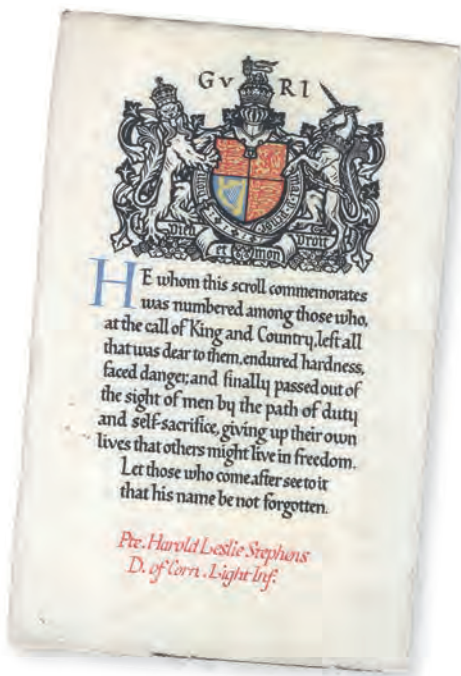 GV RI
Dieu Droit
et mon
HE whom this scroll commemorates
was numbered among those who,
at the call of King and Country, left all
that was dear to them, endured hardness,
faced danger, and finally passed out of
the sight of men by the path of duty
and self-sacrifice, giving up their own
lives that others might live in freedom.
Let those who come after see to it
that his name be not forgotten.
Pte. Harold Leslie Stephens
D. of Corn. Light Inf: